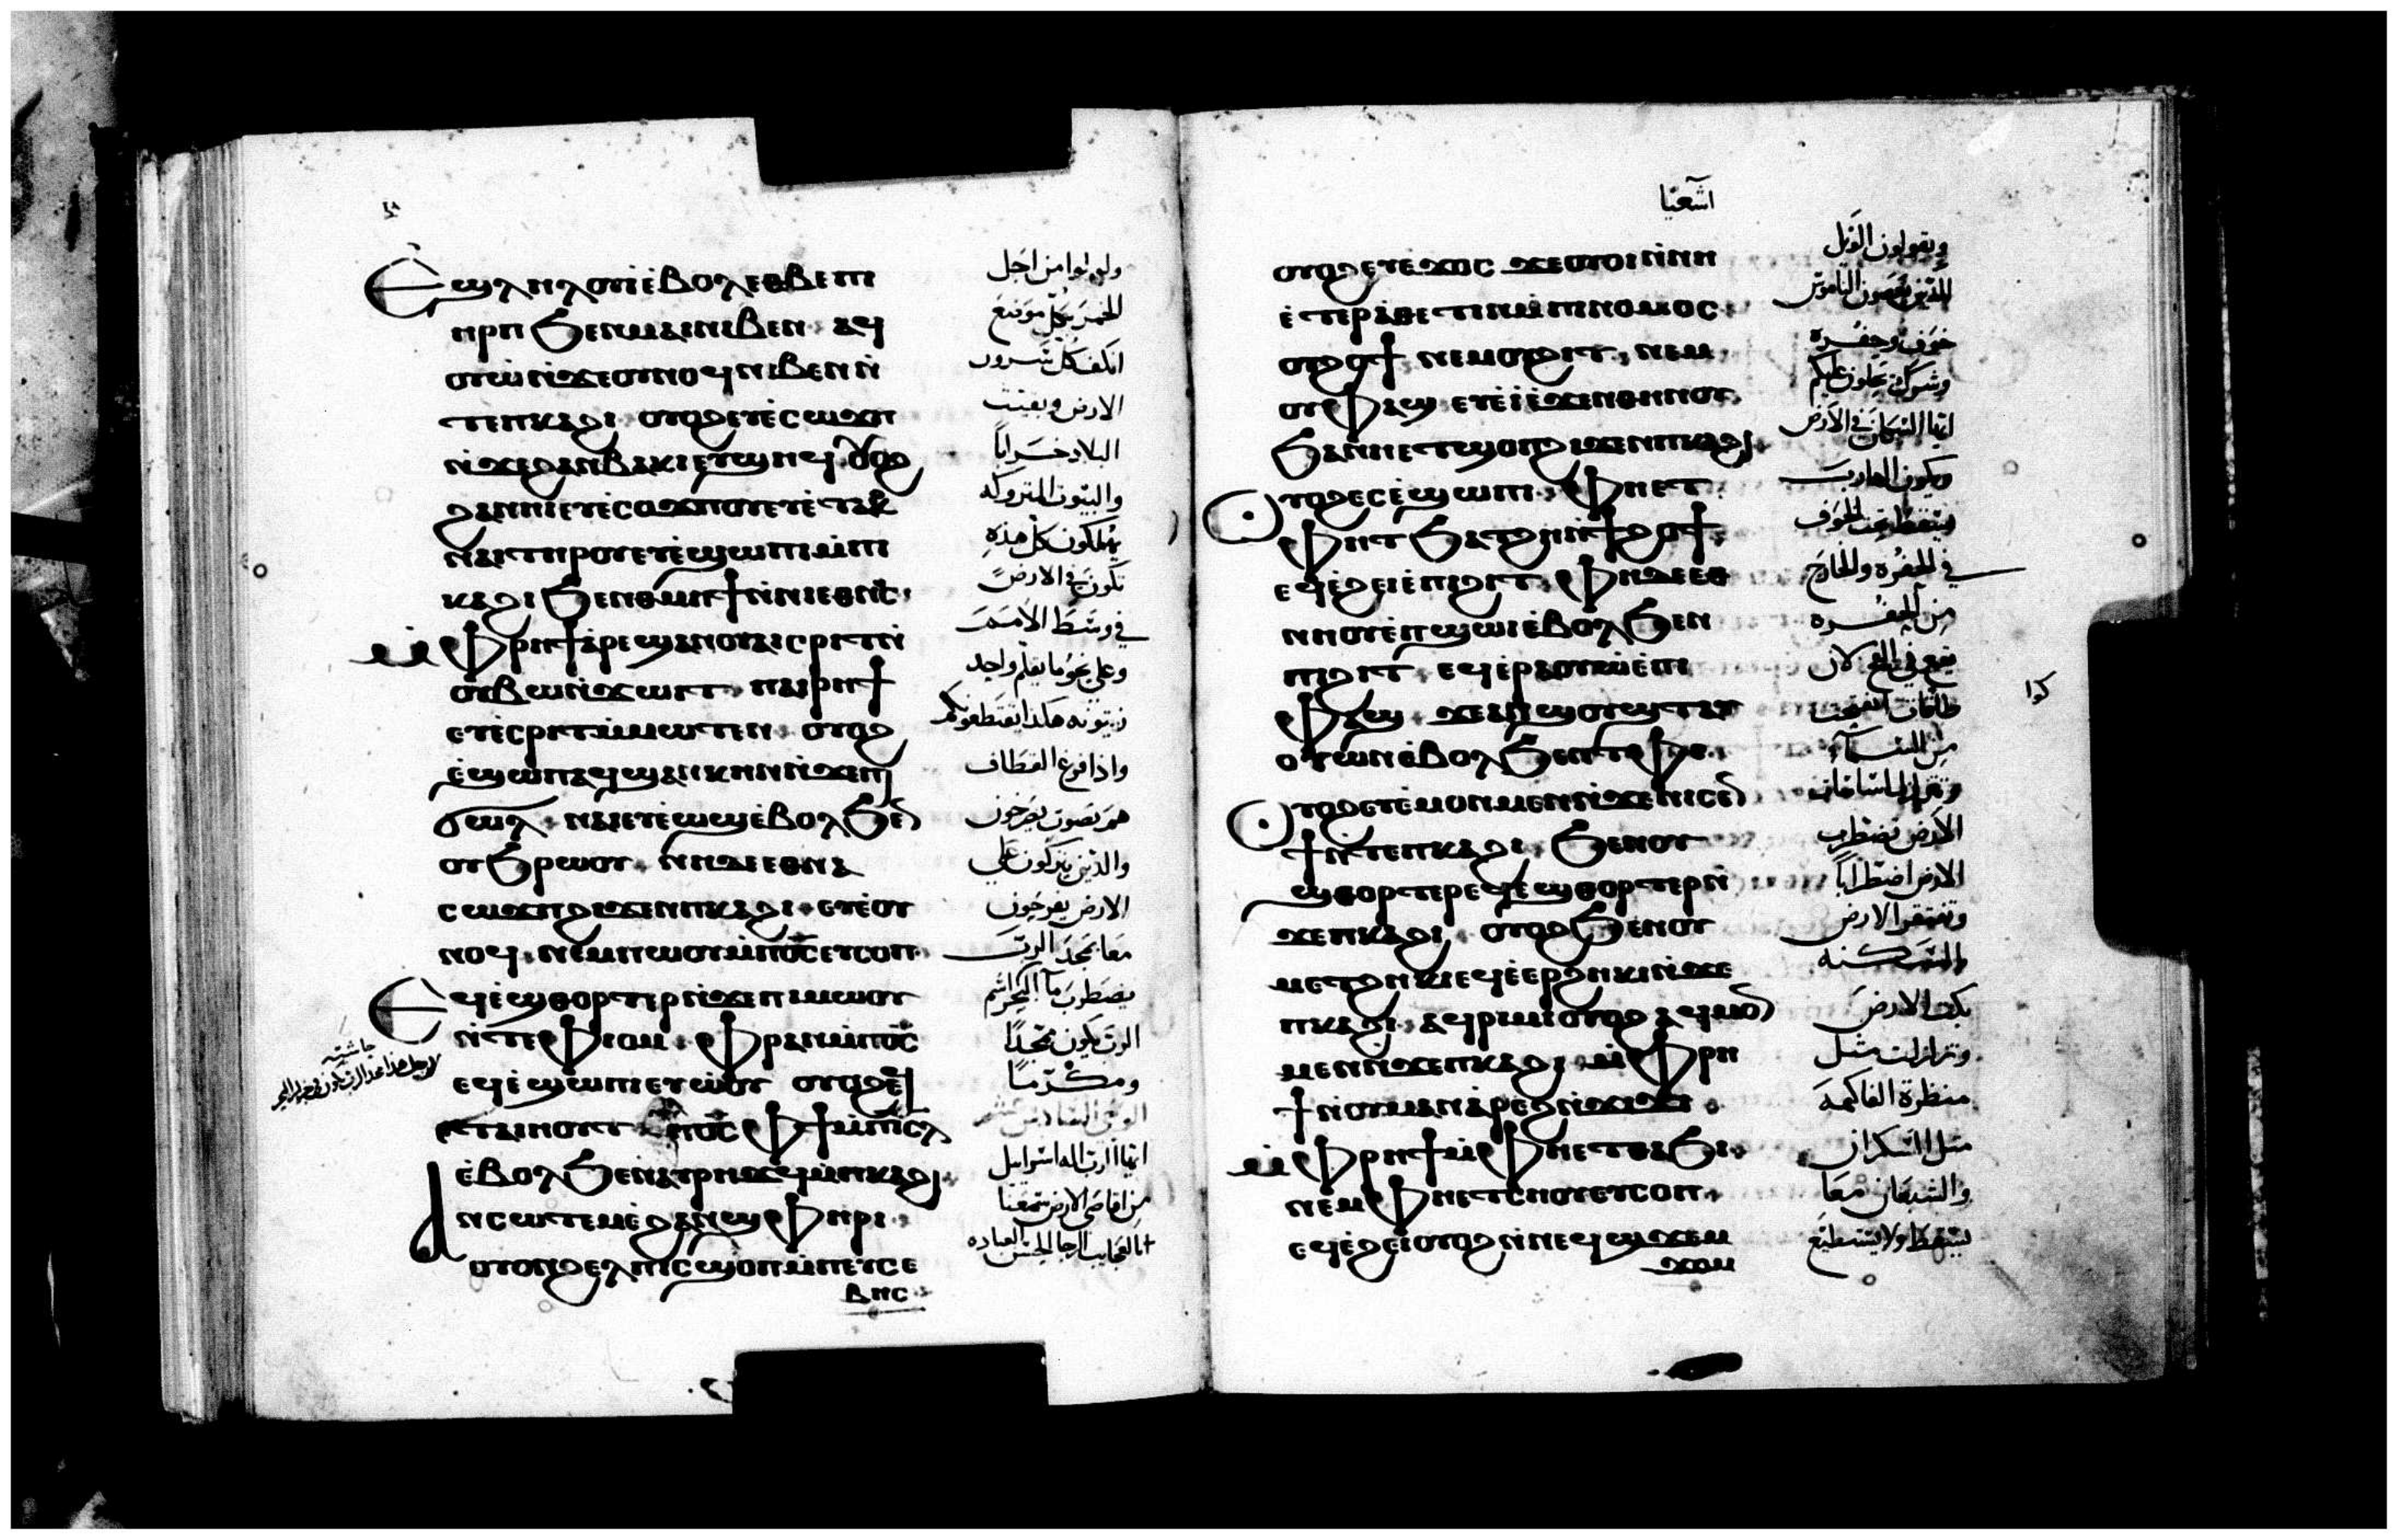 Ⲉϣⲗⲏⲗⲟⲩⲓ ⲉ̀ⲃⲟⲗ ⲉⲑⲃⲉ ⲡⲓ
ⲏⲣⲡ ϧⲉⲛ ⲙⲁⲓ ⲛⲓⲃⲉⲛ ⲁϥ
ⲟⲩⲱ ⲛ̀ϫⲉ ⲟⲩⲛⲟϥ ⲛⲓⲃⲉⲛ ⲛ̀
ⲧⲉ ⲡⲕⲁϩⲓ ⲟⲩⲟϩ ⲉⲩⲉ̀ⲥⲱϫⲡ
ⲛ̀ϫⲉ ϩⲁⲛⲃⲁⲕⲓ ⲉⲩϣⲏϥ ⲟⲩⲟϩ
ϩⲁⲛⲏⲓ ⲉⲩⲉ̀ⲥⲟϫⲡⲟⲩ ⲉⲩⲉ̀ⲧⲁⲕ
ⲛⲁⲓ ⲧⲏⲣⲟⲩ ⲉⲩⲉ̀ϣⲱⲡⲓ ⲙ̀ⲡ
ⲕⲁϩⲓ ϧⲉⲛ ⲑⲙⲏϯ ⲛ̀ⲛⲓⲉⲑⲛⲟⲥ
ⲙ̀ⲫⲣⲏϯ ⲁ̀ⲣⲉϣⲁⲛ ⲟⲩⲁⲓ ⲥⲣⲓⲧ ⲛ̀
ⲟⲩⲃⲱ ⲛ̀ϫⲱⲓⲧ ⲡⲁⲓⲣⲏϯ
ⲉⲩⲉ̀ⲥⲣⲓⲧ ⲙ̀ⲙⲱⲧⲉⲛ ⲟⲩⲟϩ
ⲉ̀ϣⲱⲡ ⲁϥϣⲁⲛⲕⲏⲛ ⲛ̀ϫⲉ ⲡⲓ
ϭⲱⲗ ⲛⲁⲓ ⲉⲩⲉ̀ⲱϣ ⲉ̀ⲃⲟⲗ ϧⲉⲛ
ⲟⲩϧⲣⲱⲟⲩ ⲛⲏ ⲇⲉ ⲉⲑⲛⲁ
ⲥⲱϫⲡ ϩⲓϫⲉⲛ ⲡⲕⲁϩⲓ ⲉⲩⲉ̀ⲟⲩ
ⲛⲟϥ ⲛⲉⲙ ⲡⲱⲟⲩ ⲙ̀ⲡⲟ̅ⲥ̅ ⲉⲩⲥⲟⲡ
Ⲉϥⲉ̀ϣⲑⲟⲣⲧⲉⲣ ⲛ̀ϫⲉ ⲡⲓⲙⲱⲟⲩ
ⲛ̀ⲧⲉ ⲫⲓⲟⲙ ⲫⲣⲁⲛ ⲙ̀ⲡⲟ̅ⲥ̅
ⲉϥⲉ̀ϣⲱⲡⲓ ⲉϥⲱ̀ⲟⲩ ⲟⲩⲟϩ ⲉϥ
ⲧⲁⲓⲏⲟⲩⲧ ⲡⲟ̅ⲥ̅ ⲫϯ ⲙ̀ⲡⲓ̅ⲥ̅ⲗ̅
ⲉ̀ⲃⲟⲗ ϧⲉⲛ ⲁⲩⲣⲏϫϥ ⲙ̀ⲡⲕⲁϩⲓ
ⲁⲛⲥⲱⲧⲉⲙ ⲉ̀ϩⲁⲛϣⲫⲏⲣⲓ
ⲟⲩⲟⲛ ϩⲉⲗⲡⲓⲥ ϣⲟⲡ ⲙ̀ⲡⲉⲩⲥⲉ
ⲃⲏⲥ
ولولوا من اجل
الخمر بكل موضع
انكف كل سرور
الارض وبقيت
البلاد خراباً
والبيوت المتروكه
يهلكون كل هذه
تكون في الارض
في وسط الامم
وعلى نحو ما يقلم واحد
زيتونه هكذا يقتطعونكم
واذا فرغ القطاف
هم بصوت يصرخون
والذين يتركون على
الارض يفرحون
معا بمجد الرب
يضطرب ماء البحر اسم
الرب يكون ممجداً
ومكرماً
ايها الرب اله اسراييل
من اقاصي الارض سمعنا
حاشيه
اشعيا
ⲟⲩⲟϩ ⲉⲩⲉ̀ϫⲟⲥ ϫⲉ ⲟⲩⲟⲓ ⲛ̀ⲛⲏ
ⲉⲧⲉⲣⲁⲑⲉⲧⲓⲛ ⲙ̀ⲡⲛⲟⲙⲟⲥ
ⲟⲩϩⲟϯ ⲛⲉⲙ ⲟⲩϩⲓⲧ ⲛⲉⲙ
ⲟⲩⲫⲁϣ ⲉⲩⲉ̀ⲓ ⲉ̀ϫⲉⲛ ⲑⲏⲛⲟⲩ
ϧⲁ ⲛⲏⲉⲧϣⲟⲡ ϩⲓϫⲉⲛ ⲡⲕⲁϩⲓ
Ⲟⲩⲟϩ ⲉⲥⲉ̀ϣⲱⲡⲓ ⲫⲏⲉⲧ
ⲫⲏⲧ ϧⲁⲧϩⲏ ⲛ̀ϯϩⲟϯ
ⲉϥⲉ̀ϩⲉⲓ ⲉ̀ⲡⲓϩⲓⲧ ⲫⲏ ⲇⲉ ⲉⲑ
ⲛⲏⲟⲩ ⲉ̀ⲡϣⲱⲓ ⲉ̀ⲃⲟⲗ ϧⲉⲛ
ⲡⲓϩⲓⲧ ⲉϥⲉ̀ⲣⲁⲟⲩⲱ̀ ⲉ̀ⲡⲓ
ⲫⲁϣ ϫⲉ ⲁⲛϣⲟⲩϣⲧ ⲁⲩ
ⲟⲩⲱⲛ ⲉ̀ⲃⲟⲗ ϧⲉⲛ ⲧⲫⲉ
Ⲟⲩⲟϩ ⲉⲩⲉ̀ⲙⲟⲛⲙⲉⲛ ⲛ̀ϫⲉ ⲛⲓⲥⲉⲛ
ϯ ⲛ̀ⲧⲉ ⲡⲕⲁϩⲓ ϧⲉⲛ ⲟⲩ
ϣⲑⲟⲣⲧⲉⲣ ⲉϥⲉ̀ϣⲑⲟⲣⲧⲉⲣ ⲛ̀
ϫⲉ ⲡⲕⲁϩⲓ ⲟⲩⲟϩ ϧⲉⲛ ⲟⲩ
ⲙⲉⲧϩⲏⲕⲓ ⲉϥⲉ̀ⲉⲣϩⲏⲕⲓ ⲛ̀ϫⲉ
ⲡⲕⲁϩⲓ ⲁϥⲣⲓⲙⲓ ⲟⲩⲟϩ ⲁϥⲙⲟⲛ
ⲙⲉⲛ ⲛ̀ϫⲉ ⲡⲕⲁϩⲓ ⲙ̀ⲫⲣⲏ
ϯ ⲛ̀ⲟⲩⲙⲁⲛⲁ̀ⲣⲉϩ ⲛ̀ϫⲓϫⲓ
ⲙ̀ⲫⲣⲏϯ ⲙ̀ⲫⲏⲉⲧⲑⲁϧⲓ
ⲛⲉⲙ ⲫⲏⲉⲧⲥⲏⲟⲩ ⲉⲩⲥⲟⲡ
ⲉϥⲉ̀ϩⲉⲓ ⲟⲩⲟϩ ⲛ̀ⲛⲉϥϣϫⲉⲙ
ϫⲟⲙ
ويقولون الويل
للذين يرفضون الناموس
خوف وحفره
وشرك يحلون عليكم
ايها السكان في الارض
ويكون الهارب
يسقط تحت الخوف
في الحفره والخارج
من الحفره
يقع في الفخ لان
طاقات انفتحت
من السماء
وتتزلزل اساسات
الارض تضطرب
الارض اضطراباً
وتفتقر الارض
والمسكنه
بكت الارض
وتزلزلت مثل
منظرة الفاكهه
مثل السكران
والشبعان معا
يسقط ولا يستطيع
كدا